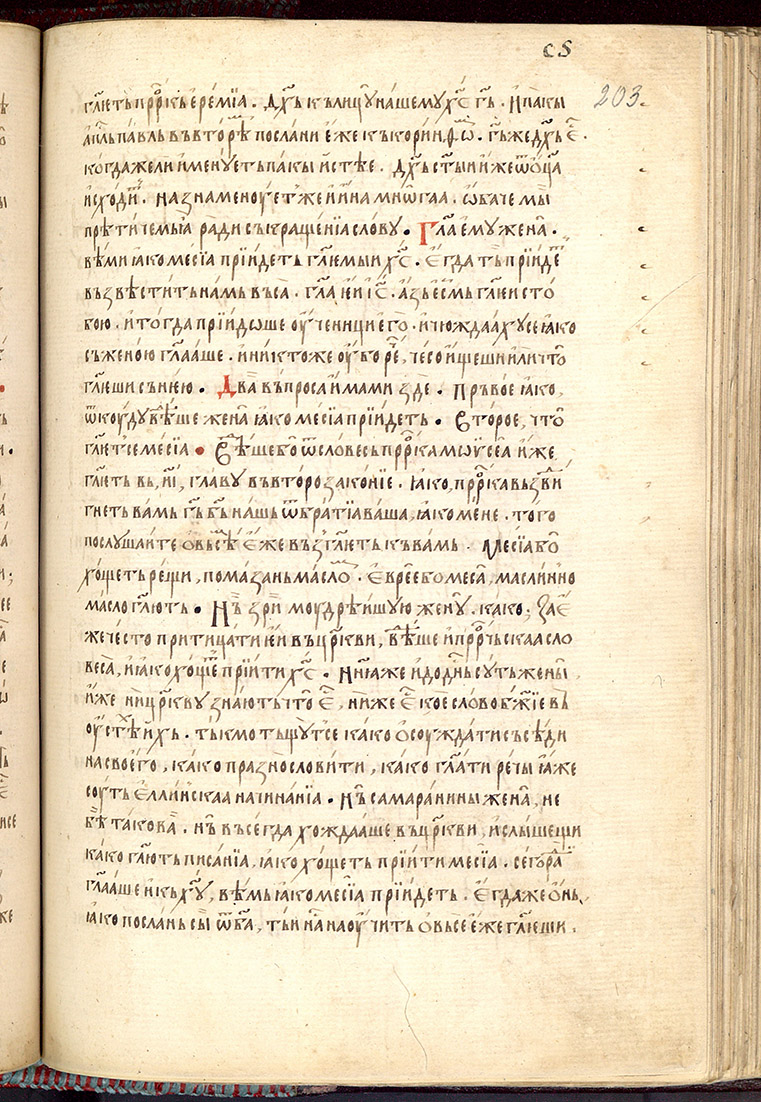 сѕ
203.
гл҃еть прⷪ҇ркь ере́мїа . дх҃ъ къ лицꙋ̀ на́шемꙋ хс҃ гь҃ . И҆ па́кы
а҆пⷭ҇ль па́вль въ вто́рⷨѣ посла́ни е҆́же къ кори́нѳⷨѡ . гь҃ же дх҃ь е҆́ⷭ .
когда́ же ли и҆менꙋ́еть па́кы и҆ сі́е . дх҃ь ст҃ы́и и҆́же ѿ ѻц҃а
и҆схо́дⷮи . назнаменоꙋ́ет же и҆ и҆́на мнѡ́гаа . ѻ҆ба́че мы̀
прѣ́тичемь ꙗ҆̀ ра́ди съкраще́нїа сло́вꙋ . Гл҃а е҆мꙋ̀ жена̀ .
вѣ́ми ꙗ҆́ко месі́а прїи́деть гл҃ꙗ́емыи хс҃ . Е҆гда̀ тъ прїи́деⷮ
възвѣсти́ть на́мь въса̀ . гл҃а е҆́и і҆с҃ . а҆́зь е҆́смь гл҃ꙗ́еи с то
бо́ю . и҆ тогда̀ прїидо́ше оу҆ченици є҆го̀ . и҆ чюжда́ахꙋ се ꙗ҆́ко
сь жено́ю гл҃а́аше . и҆ никто́же оу҆́бо реⷱ҇ , чесо̀ и҆́щеши и҆лѝ что̀
гл҃ꙗ́еши сь не́ю . Два̀ въпро́са и҆́мамы здѐ . Пръ́вое ꙗ҆́ко ,
ѿкꙋ́дꙋ вѣ́ⷣше жена̀ ꙗ҆́ко месі́а прїи́деть . Вто́рое , что̀
гл҃ет се месі́а . Вѣⷣше бо ѿ слове́сь прⷪ҇рка мѡѷсе́а и҆́же
гл҃еть въ , иі҃ , главꙋ̀ въ второзако́нїе . ꙗ҆́ко , прⷪ҇рка въздви́
гнеть ва́мь гь҃ бь҃ на́шь ѿ бра́тїа ва́ша , ꙗ҆́ко ме́не . того̀
послꙋ́шаите ѻ҆ вь́сⷨѣ е҆́же въз гл҃еть къ ва́мь . Месі́а бо
хо́щеть рещѝ , пома́зань ма́слоⷨ . Е҆вре́е бо меса̀ , ма́слинно
ма́сло гл҃ють . Нъ̀ зри̏ моудрѣ́ишꙋю женꙋ̀ . ка́ко ; За е҆́
же че́сто притица́ти е҆́и въ цр҃кви , вѣ́ⷣше и҆ прⷪ҇рчьскаа сло
веса̀ , и҆ ꙗ҆́ко хо́щеⷮ прїити́ хс҃ . Нн҃ꙗ же и҆до́дн҃ь сꙋ́ть жены̀ ,
и҆́же нѝ цр҃квꙋ зна́ють что̀ е҆́ⷭ , ниже е҆́ⷭ ко́е сло́во бж҃їе въ
оу҆стⷯѣ́ и҆́хь . тъ́кмо тъщꙋ́т се ка́ко ѻ҆соужда́ти сьсѣ́ди
на своего̀ , ка́ко празнослови́ти , ка́ко гл҃а́ти ре́чы ꙗ҆́же
соу́ть е҆́ллинскаа начина́нїа . Нъ̀ самара́нины жена̀ , не
бѣ̀ такова̀ . нъ̀ въсегда хожда́аше въ цр҃кви , и҆ слы́шещи
ка́ко гл҃ють писа́нїа , ꙗ҆́ко хо́щеть прїити̏ месі́а . сего̀ раⷣ
гл҃а́аше и҆ къ хꙋ҃ , вѣ́мь ꙗ҆́ко месі́а прїи́деть . Е҆гда́ же ѻ҆́нь ,
ꙗ҆́ко по́слань сы̀ ѿ ба҃ , тъ́и на̏ наоу҆́чить ѻ҆ вь́се е҆́же гл҃ꙗ́еши .